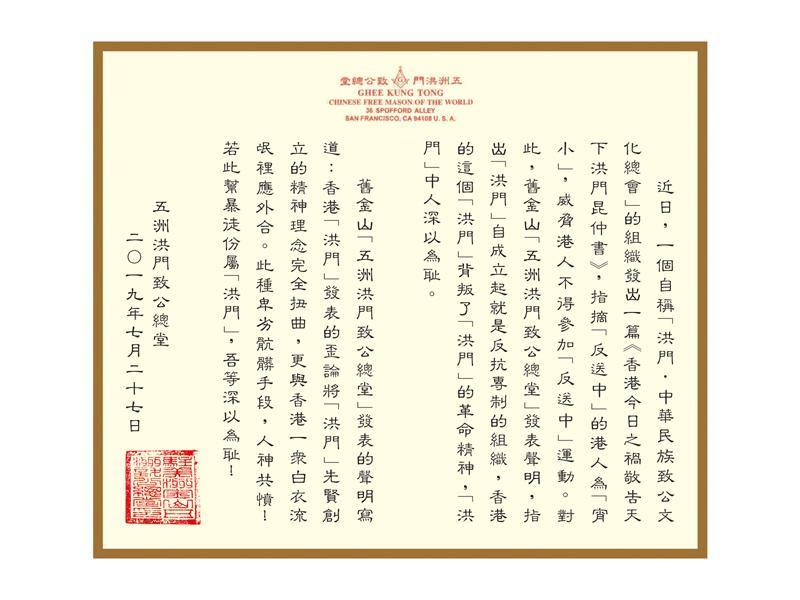 五洲洪門致公總堂
GHEE KUNG TONG
CHINESE FREE MASON OF THE WORLD
36 SPOFFORD ALLEY
SAN FRANCISCO, CA 94108 U. S. A.
近日，一個自稱「洪門·中華民族致公文
化總會」的組織發出一篇《香港今日之禍敬告天
下洪門昆仲書》，指摘「反送中」的港人為「宵
小」，威脅港人不得參加「反送中」運動。對
此，舊金山「五洲洪門致公總堂」發表聲明，指
出「洪門」自成立起就是反抗專制的組織，香港
的這個「洪門」背叛了「洪門」的革命精神，「洪
門」中人深以為恥。
舊金山「五洲洪門致公總堂」發表的聲明寫
道：香港「洪門」發表的歪論將「洪門」先賢創
立的精神理念完全扭曲，更與香港一衆白衣流
氓裡應外合。此種卑劣骯髒手段，人神共憤！
若此幫暴徒份屬「洪門」，吾等深以為恥！
五洲洪門致公總堂
二〇一九年七月二十七日